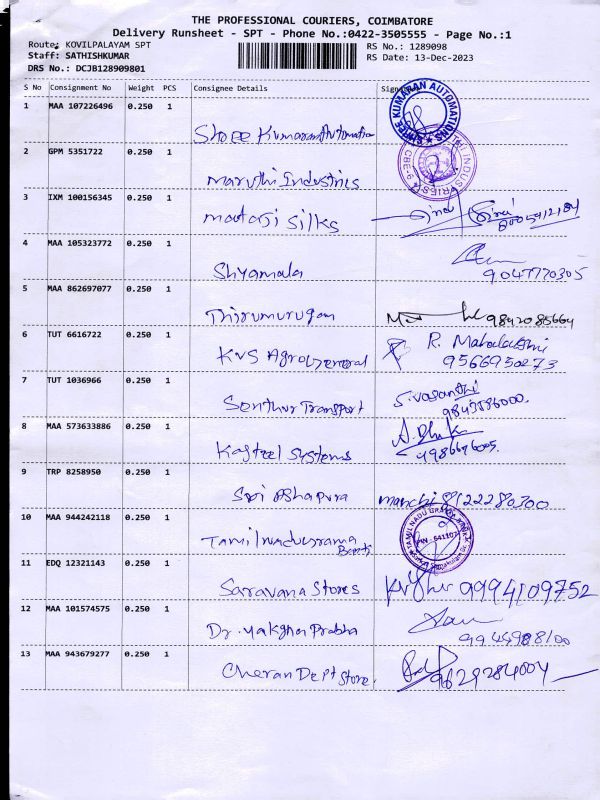 THE PROFESSIONAL COURIERS, COIMBATORE
Delivery Runsheet - SPT - Phone No.:0422-3505555 - Page No.:1
Route: KOVILPALAYAM SPT
RS No.: 1289098
Staff: SATHISHKUMAR
RS Date: 13-Dec-2023
DRS No.: DCJB128909801
S No Consignment No Weight PCS Consignee Details
1 MAA 107226496 0.250 1
Shree Kumaran Automation
SHREE KUMARAN AUTOMATIONS
2 GPM 5351722 0.250 1
Maruthi Industries
INDUSTRIES CBE-9
3 IXM 100156345 0.250 1
mataji silks
8005412184
4 MAA 105323772 0.250 1
Shyamala
9047770305
5 MAA 862697077 0.250 1
Thirumurugan
9842085664
6 TUT 6616722 0.250 1
KVS Agro General
R. Mahalakshmi
9566950273
7 TUT 1036966 0.250 1
Senthur Transport
S. Vasanthi
9843886000.
8 MAA 573633886 0.250 1
Kasteel Systems
9 TRP 8258950 0.250 1
8122280300
10 MAA 944242118 0.250 1
Tamilnadu grama Bank
TAMIL NADU GRAMA BANK
PIN - 641107
11 EDQ 12321143 0.250 1
Saravana Stores
9994109752
12 MAA 101574575 0.250 1
Dr. Yakgna Prabha
9944988100
13 MAA 943679277 0.250 1
Cheran Dept Store.
9629284004